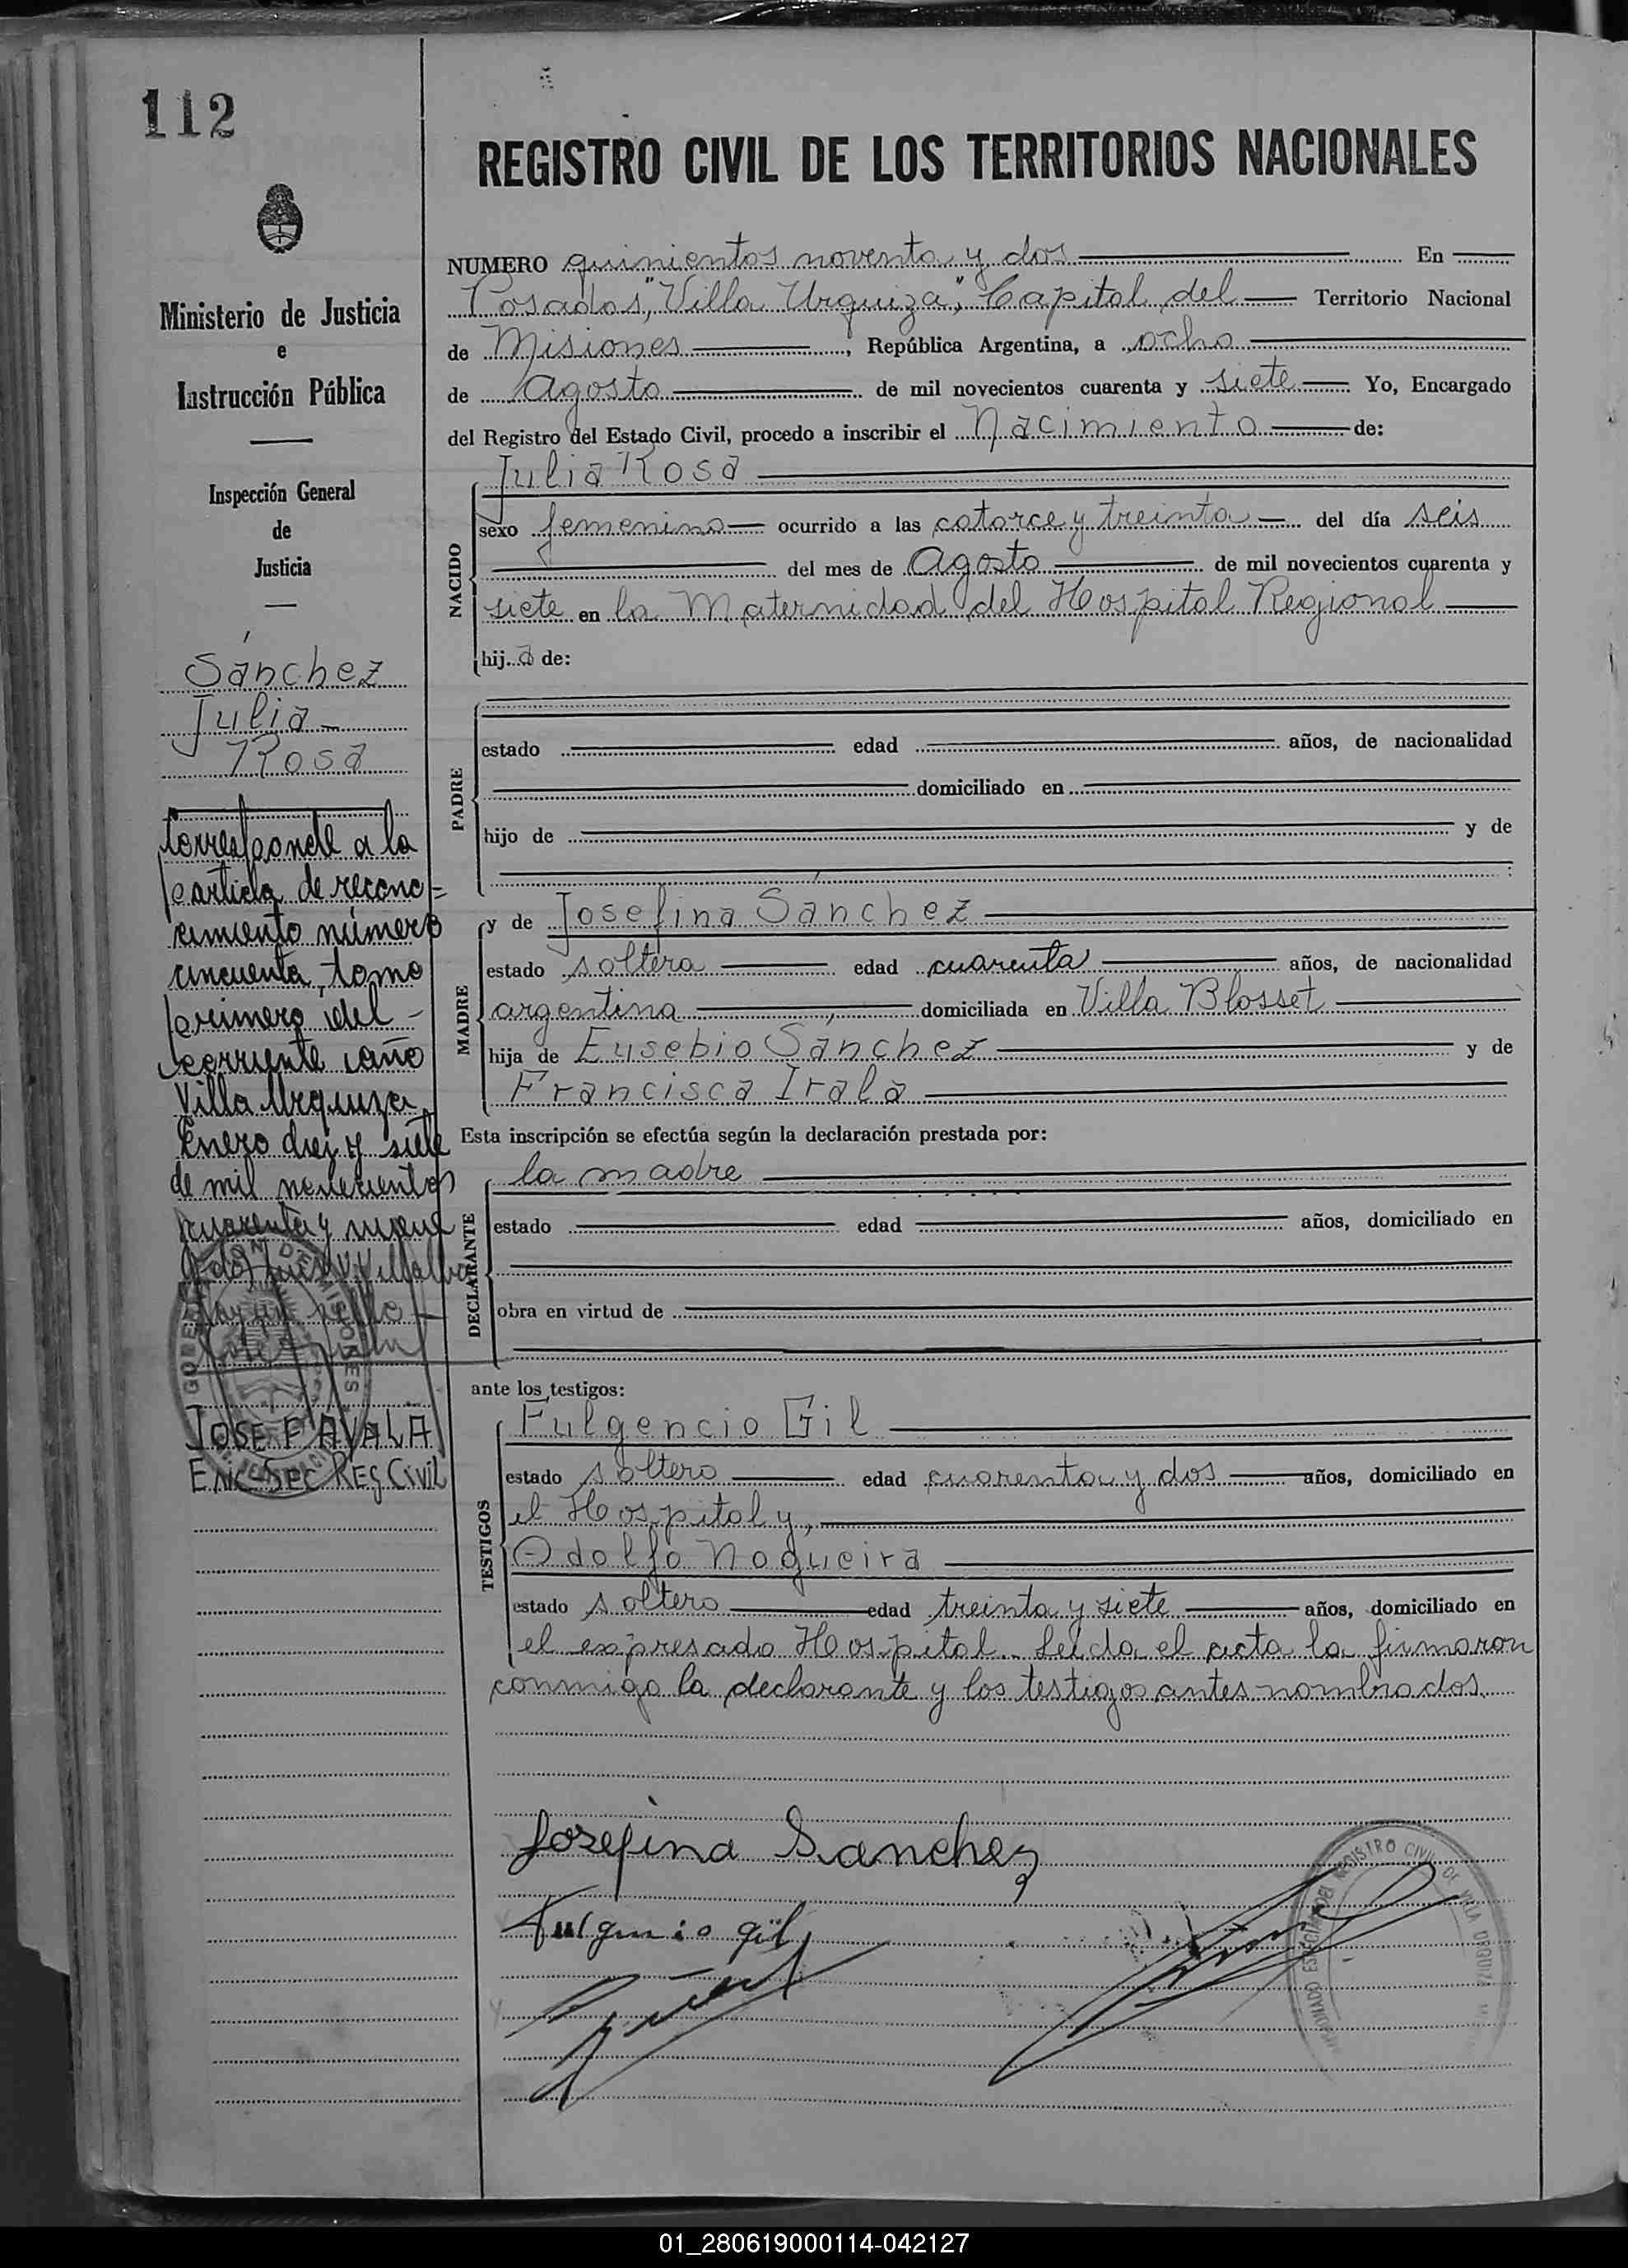 112
REGISTRO CIVIL DE LOS TERRITORIOS NACIONALES
Ministerio de Justicia
e
Instrucción Pública
Inspección General
de
Justicia
Sánchez
Julia
Rosa
Corresponde a la
partida de recono=
cimiento número
cincuenta, tomo
primero del
corriente año
Villa Urquiza
Enero diez y siete
de mil novecientos
cuarenta y nueve
Villalba
Hay un sello
GOBERNACION DE MISIONES
JOSE F AYALA
ENC-SEC REG CIVIL
NUMERO quinientos noventa y dos En
Posadas, "Villa Urquiza", Capital del Territorio Nacional
de Misiones, República Argentina, a ocho
de Agosto de mil novecientos cuarenta y siete Yo, Encargado
del Registro del Estado Civil, procedo a inscribir el Nacimiento de:
NACIDO
Julia Rosa
sexo femenino ocurrido a las catorce y treinta del día seis
del mes de Agosto de mil novecientos cuarenta y
siete en la Maternidad del Hospital Regional
hija de:
PADRE
estado edad años, de nacionalidad
domiciliado en
hijo de y de
:
MADRE
y de Josefina Sánchez
estado soltera edad cuarenta años, de nacionalidad
argentina domiciliada en Villa Blosset
hija de Eusebio Sánchez y de
Francisca Irala
Esta inscripción se efectúa según la declaración prestada por:
DECLARANTE
la madre
estado edad años, domiciliado en
obra en virtud de
ante los testigos:
TESTIGOS
Fulgencio Gil
estado soltero edad cuarenta y dos años, domiciliado en
el Hospital y,
Adolfo Nogueira
estado soltero edad treinta y siete años, domiciliado en
el expresado Hospital. Leída el acta la firmaron
conmigo la declarante y los testigos antes nombrados.
Josefina Sanchez
Fulgencio gil
REGISTRO CIVIL DE VILLA URQUIZA
01_280619000114-042127